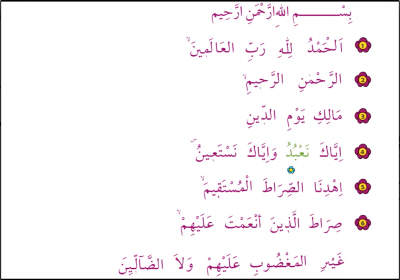 بِسْــــــــــمِ اللهِ الرَّحْمَنِ الرَّحِيمِ
1 اَلْحَمْدُ لِلّٰهِ رَبِّ العَالَمِينَۙ
2 الرَّحْمٰنِ الرَّحِيمِۙ
3 مَالِكِ يَوْمِ الدِّينِ
4 اِيَّاكَ نَعْبُدُ وَاِيَّاكَ نَسْتَعِينُ
5 اِهْدِنَا الصِّرَاطَ الْمُسْتَقِيمَۙ
6 صِرَاطَ الَّذِينَ اَنْعَمْتَ عَلَيْهِمْۙ
غَيْرِ المَغْضُوبِ عَلَيْهِمْ وَلاَ الضَّآلِّينَ